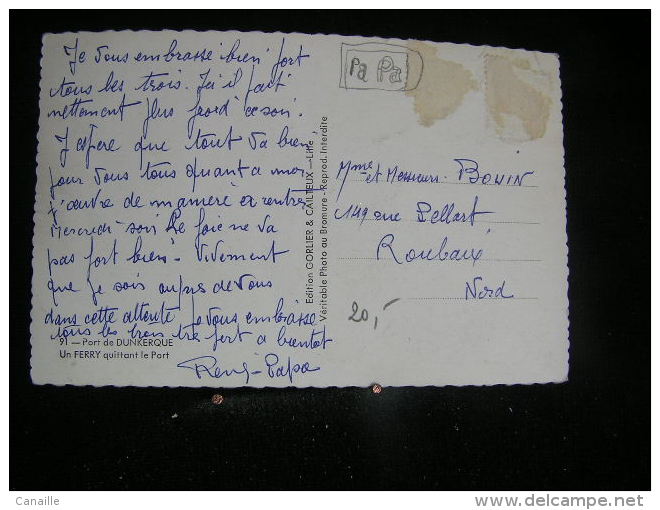 Je vous embrasse bien fort
tous les trois. Ici il fait
nettement plus froid ce soir.
J'espere que tout va bien
pour vous tous quant a moi
j'œuvre de maniere a rentrer
Mercredi soir le foie ne va
pas fort bien. Vivement
que je sois aupres de vous
dans cette attente je vous embrasse
tous les trois tres fort a bientot
René-Papa
91 — Port de DUNKERQUE
Un FERRY quittant le Port
Edition GORLIER & CAILTEUX — Lille
Véritable Photo au Bromure - Reprod. Interdite
Pa Pa
Mme et Messieurs BOUIN
149 rue Pellart
Roubaix
Nord
20,-
Canaille
delcampe.net